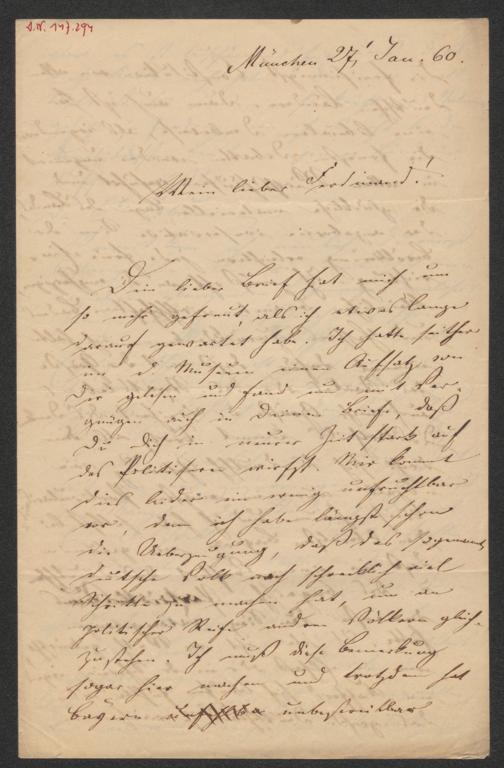 I.N. 147.294
München 27/ Jan. 60.
Mein lieber Ferdinand!
Dein lieber Brief hat mich um
so mehr gefreut, als ich etwas lange
darauf gewartet habe. Ich hatte seither
im d. Museum einen Aufsatz von
Dir gelesen und fand nun mit Ver-
gnügen auch in Deinem Briefe, daß
Du Dich in neuerer Zeit stark auf
das Politisiren wirfst. Mir kommt
dies leider ein wenig unfruchtbar
vor, denn ich habe längst schon
die Ueberzeugung, daß das sogenannte
deutsche Volk noch schrecklich viel
Schritte zu machen hat, um an
politischer Reife andern Völkern gleich-
zustehen. Ich muß diese Bemerkung
sogar hier machen und trotzdem hat
Bayern unbestreitbar